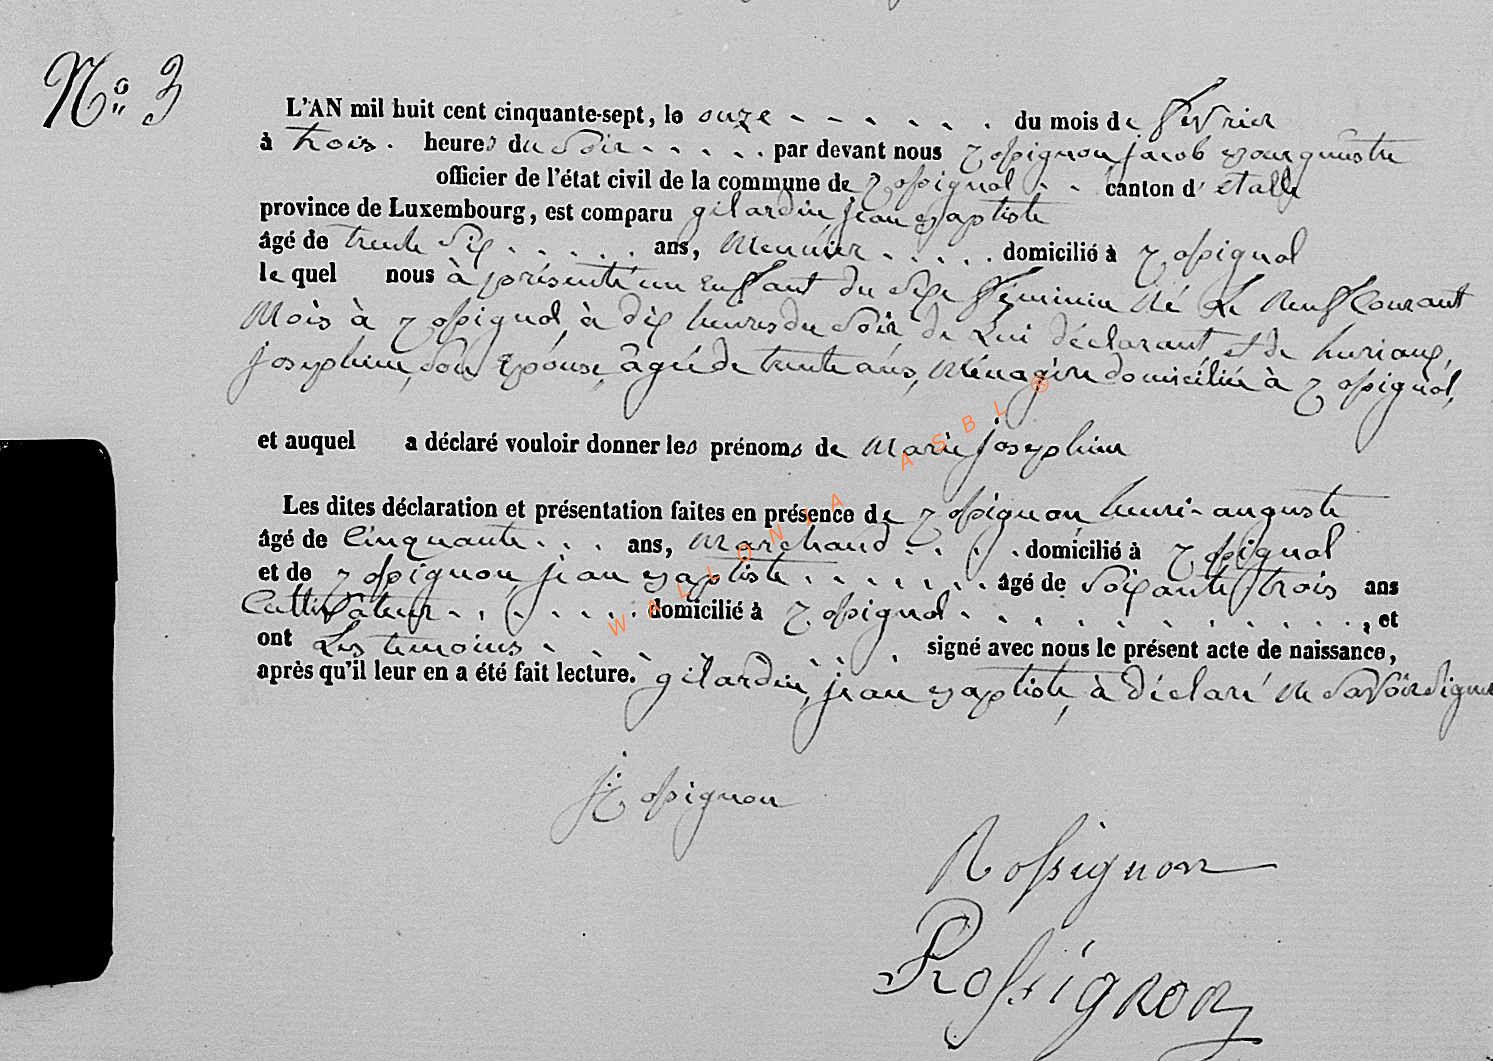 No 3
L'AN mil huit cent cinquante-sept, le onze du mois de février
à trois heures du soir par devant nous rossignon, jacob bourgumstre
officier de l'état civil de la commune de rossignol canton d'étalle
province de Luxembourg, est comparu gilardin jean baptiste
âgé de trente six ans, Meunier domicilié à rossignol
le quel nous à présenté un enffant du sexe féminin né Le Neuf Courant
Mois à rossignol, à dix heures du soir de Lui déclarant, et de henriaux,
josephine, son Epouse, âgée de trente ans, Ménagère domiciliée à rossignol,
et auquel a déclaré vouloir donner les prénoms de Marie josephine
Les dites déclaration et présentation faites en présence de rossignon henri-auguste
âgé de Cinquante ans, Marchand domicilié à rossignol
et de rossignon, jean baptiste âgé de soixante trois ans
Cultivateur domicilié à rossignol, et
ont Les temoins signé avec nous le présent acte de naissance,
après qu'il leur en a été fait lecture. gilardin, jean baptiste, à déclaré ne savoir signer
WALLONIA ASBL ®
rossignon
Rossignon
Rossignon